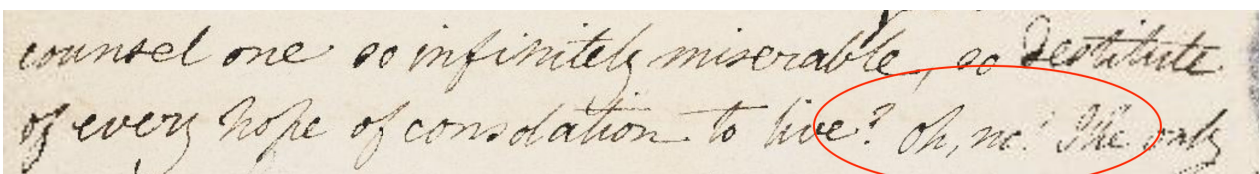 counsel one so infinitely miserable, so destitute
of every hope of consolation to live? Oh, no! The only